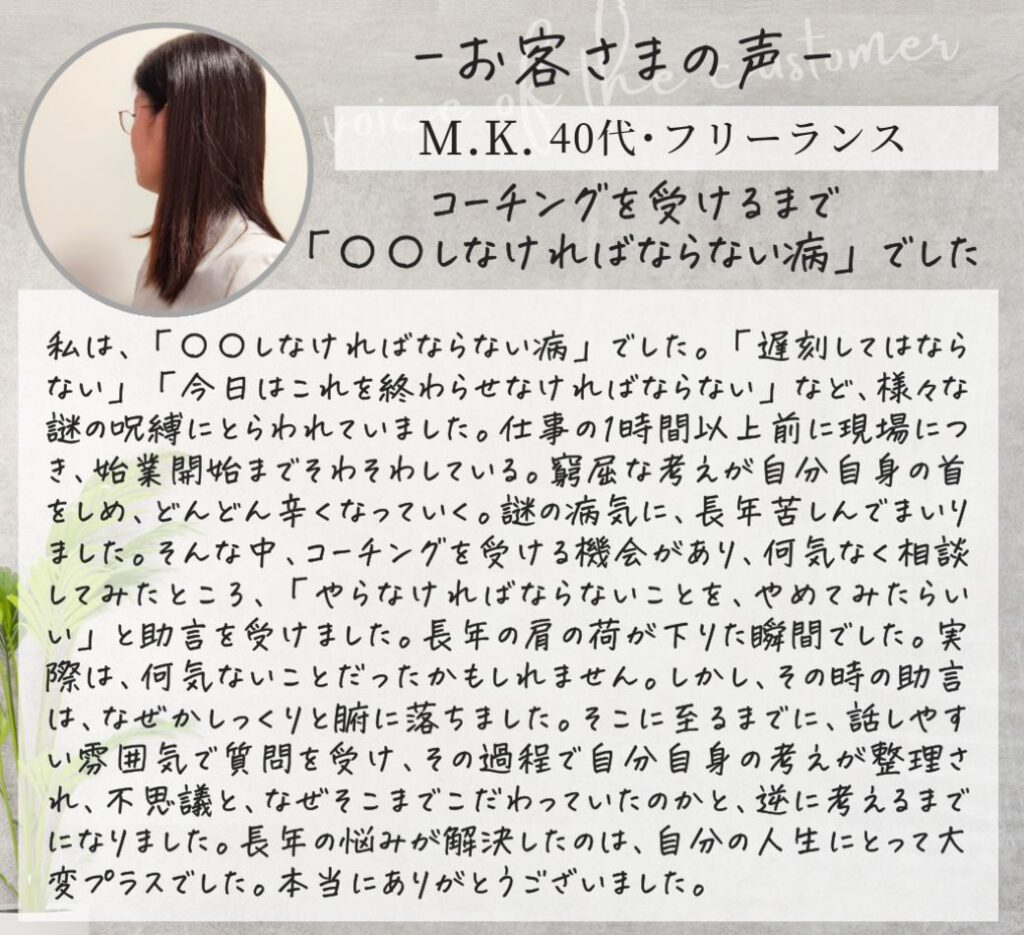 voice of the customer
-お客さまの声-
M.K. 40代・フリーランス
コーチングを受けるまで
「〇〇しなければならない病」でした
私は、「〇〇しなければならない病」でした。「遅刻してはなら
ない」「今日はこれを終わらせなければならない」など、様々な
謎の呪縛にとらわれていました。仕事の1時間以上前に現場につ
き、始業開始までそわそわしている。窮屈な考えが自分自身の首
をしめ、どんどん辛くなっていく。謎の病気に、長年苦しんでまいり
ました。そんな中、コーチングを受ける機会があり、何気なく相談
してみたところ、「やらなければならないことを、やめてみたらい
い」と助言を受けました。長年の肩の荷が下りた瞬間でした。実
際は、何気ないことだったかもしれません。しかし、その時の助言
は、なぜかしっくりと腑に落ちました。そこに至るまでに、話しやす
い雰囲気で質問を受け、その過程で自分自身の考えが整理さ
れ、不思議と、なぜそこまでこだわっていたのかと、逆に考えるまで
になりました。長年の悩みが解決したのは、自分の人生にとって大
変プラスでした。本当にありがとうございました。